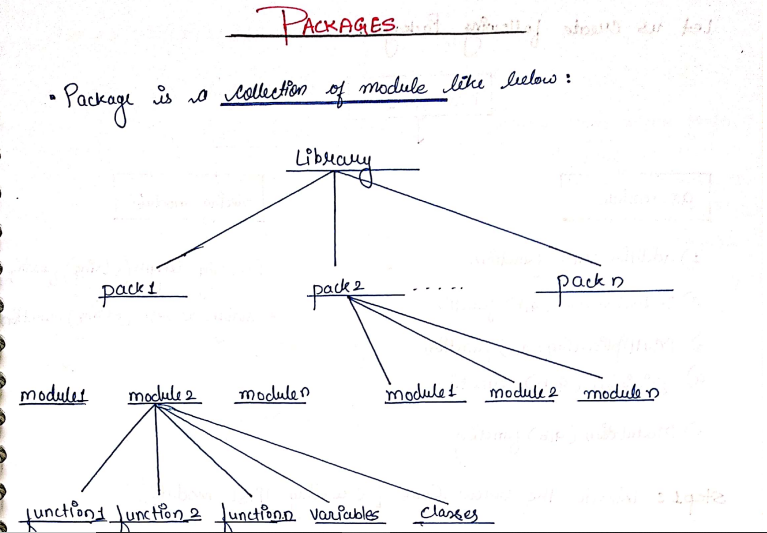 PACKAGES
• Package is a collection of module like below :
Library
pack1 pack2 ..... pack n
module1 module2 module n module1 module2 module n
function1 function2 function n variables classes